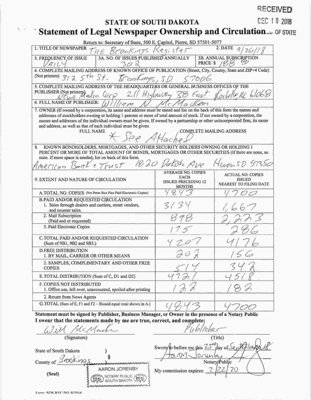 RECEIVED
DEC 10 2018
STATE OF SOUTH DAKOTA
Statement of Legal Newspaper Ownership and Circulation OF STATE
Return to: Secretary of State, 500 E. Capitol, Pierre, SD 57501-5077
1. TITLE OF NEWSPAPER The Brookings Register 2. DATE 9/20/18
3. FREQUENCY OF ISSUE Daily 3A. NO. OF ISSUES PUBLISHED ANNUALLY 302 3B. ANNUAL SUBSCRIPTION PRICE $
4. COMPLETE MAILING ADDRESS OF KNOWN OFFICE OF PUBLICATION (Street, City, County, State and ZIP+4 Code) (Not Printers)
312 5th St. Brookings, SD 57006
5. COMPLETE MAILING ADDRESS OF THE HEADQUARTERS OR GENERAL BUSINESS OFFICES OF THE PUBLISHER (Not printers)
News Media Corp 211 Highway 38 East Rochelle IL 61068
6. FULL NAME OF PUBLISHER: William N. McMacken
7. OWNER (If owned by a corporation, its name and address must be stated and also immediately the names and addresses of stockholders owning or holding 1 percent or more of total amount of stock. If not owned by a corporation, the names and addresses of the individual owners must be given. If owned by a partnership or other unincorporated firm, its name and address, as well as that of each individual must be given.)
FULL NAME COMPLETE MAILING ADDRESS
* See Attached
8. KNOWN BONDHOLDERS, MORTGAGEES, AND OTHER SECURITY HOLDERS OWNING OR HOLDING 1 PERCENT OR MORE OF TOTAL AMOUNT OF BONDS, MORTGAGES OR OTHER SECURITIES (If there are none, so state. If more space is needed, list on back of this form.
American Bank & Trust 1820 Dakota Ave Huron SD 57350
9. EXTENT AND NATURE OF CIRCULATION
AVERAGE NO. COPIES EACH ISSUED PRECEDING 12 MONTHS
ACTUAL NO. COPIES ISSUED NEAREST TO FILING DATE
A. TOTAL NO. COPIES 4843 4700
B. PAID AND/OR REQUESTED CIRCULATION
1. Sales through dealers and carriers, street vendors, and counter sales. 3134 1,667
2. Mail Subscriptions (Paid and/or requested) 898 2,223
3. Paid Electronic Copies 175 286
C. TOTAL PAID AND/OR REQUESTED CIRCULATION (Sum of 9B1, 9B2 and 9B3.) 4207 4176
D. FREE DISTRIBUTION
1. BY MAIL, CARRIER OR OTHER MEANS 202 156
2. SAMPLES, COMPLIMENTARY AND OTHER FREE COPIES 514 342
E. TOTAL DISTRIBUTION (Sum of C, D1 and D2) 4721 4518
F. COPIES NOT DISTRIBUTED
1. Office use, left over, unaccounted, spoiled after printing 122 182
2. Return from News Agents
G. TOTAL (Sum of E, F1 and F2 - Should equal total shown in A.) 4843 4700
Statement must be signed by Publisher, Business Manager, or Owner in the presence of a Notary Public
I swear that the statements made by me are true, correct, and complete:
Publisher
(Signature) (Title)
State of South Dakota )
County of Brookings )
Sworn to before me this 25th day of
(Seal) AARON JORENBY
NOTARY PUBLIC
SOUTH DAKOTA
Notary Public
My commission expires: 7/22/20